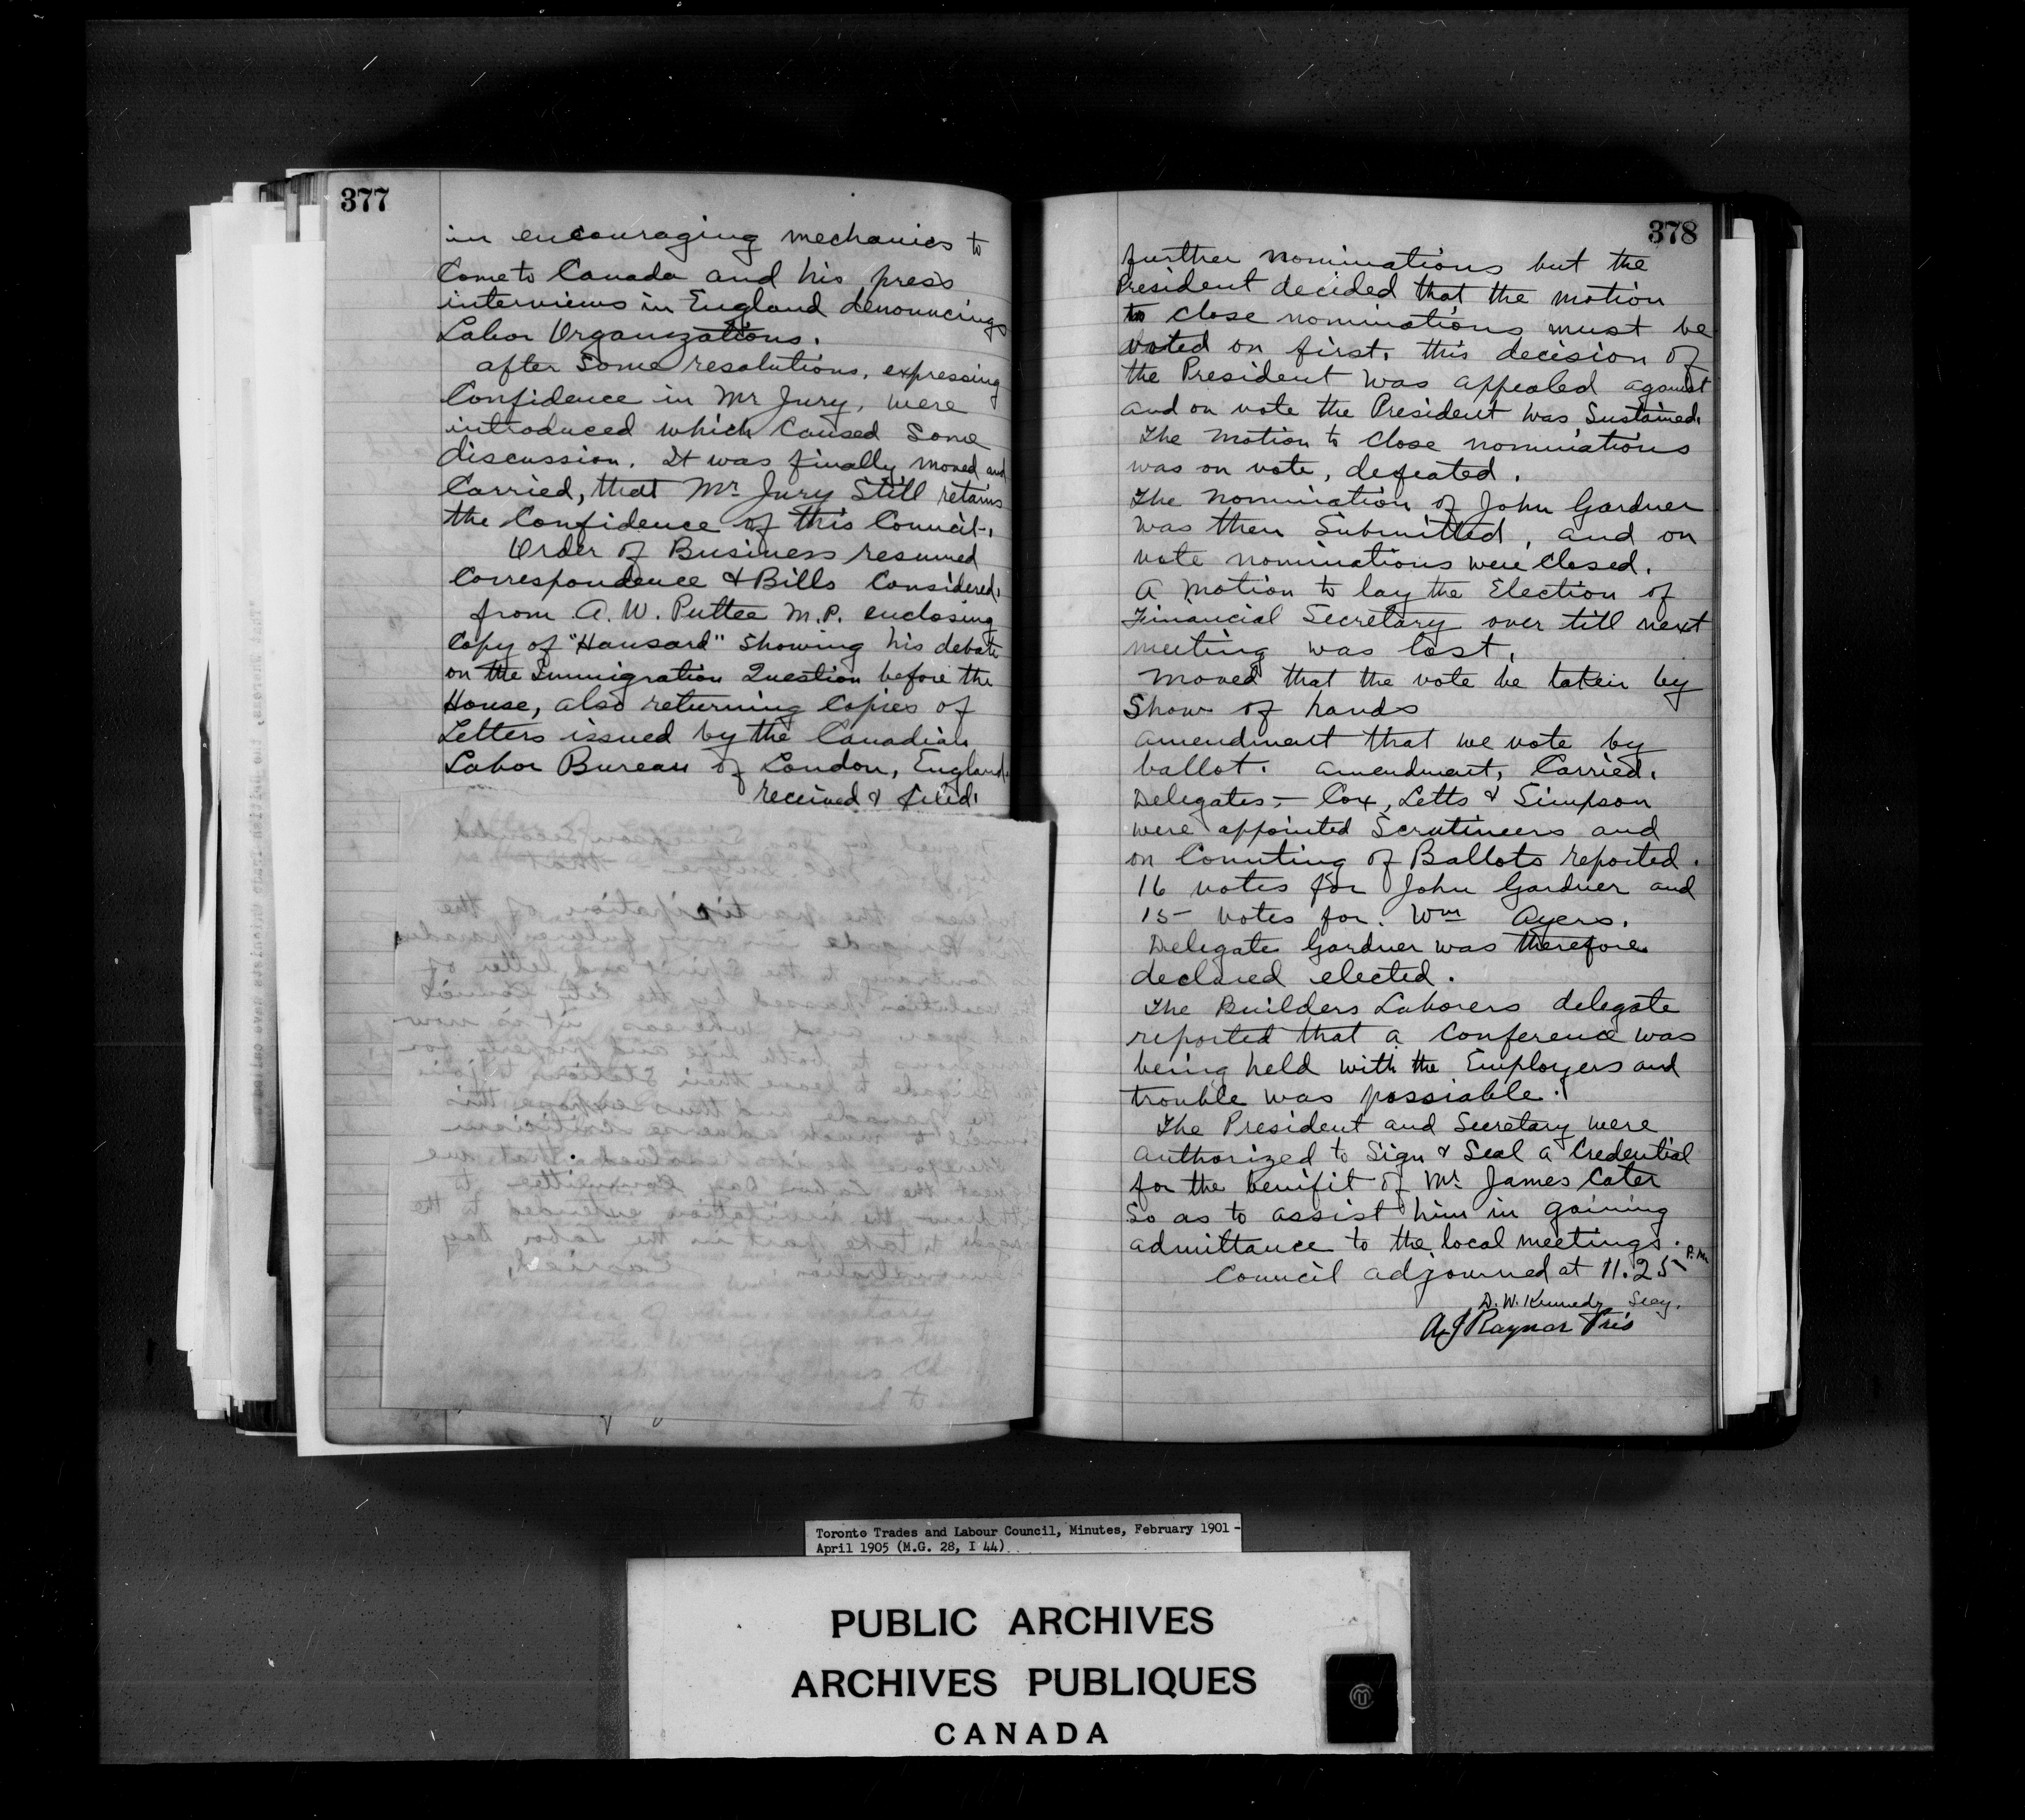 377
in encouraging mechanics to
Come to Canada and his press
interviews in England denouncing
Labor Organizations.
after Some resolutions, expressing
Confidence in Mr Jury, were
introduced which Caused Some
discussion. It was finally moved and
Carried, that Mr. Jury Still retains
the Confidence of this Council.
Order of Business resumed
Correspondence & Bills Considered.
from A. W. Puttee M.P. enclosing
Copy of "Hansard" Showing his debate
on the Immigration Question before the
House, also returning Copies of
Letters issued by the Canadian
Labor Bureau of London, England.
received & filed.
378
further nominations but the
President decided that the motion
to close nominations must be
voted on first. this decision of
the President was appealed against
and on vote the President was Sustained.
The motion to Close nominations
was on vote, defeated.
The nomination of John Gardner
was then Submitted, and on
vote nominations were Closed.
A Motion to lay the Election of
Financial Secretary over till next
meeting was lost.
Moved that the vote be taken by
Show of hands
amendment that we vote by
ballot. amendment, Carried.
Delegates,- Cox, Letts & Simpson
were appointed Scrutineers and
on Counting of Ballots reported.
16 votes for John Gardner and
15 votes for. Wm Ayers.
Delegate Gardner was therefore
declared elected.
The Builders Laborers delegate
reported that a Conference was
being held with the Employers and
trouble was possiable.
The President and Secretary were
authorized to Sign & Seal a Credential
for the benifit of Mr. James Cater
So as to assist him in gaining
admittance to the local meetings.
Council adjourned at 11.25 P.M
D. W. Kennedy Secy.
A J Raynor Pres
Toronto Trades and Labour Council, Minutes, February 1901 -
April 1905 (M.G. 28, I 44)
PUBLIC ARCHIVES
ARCHIVES PUBLIQUES
CANADA